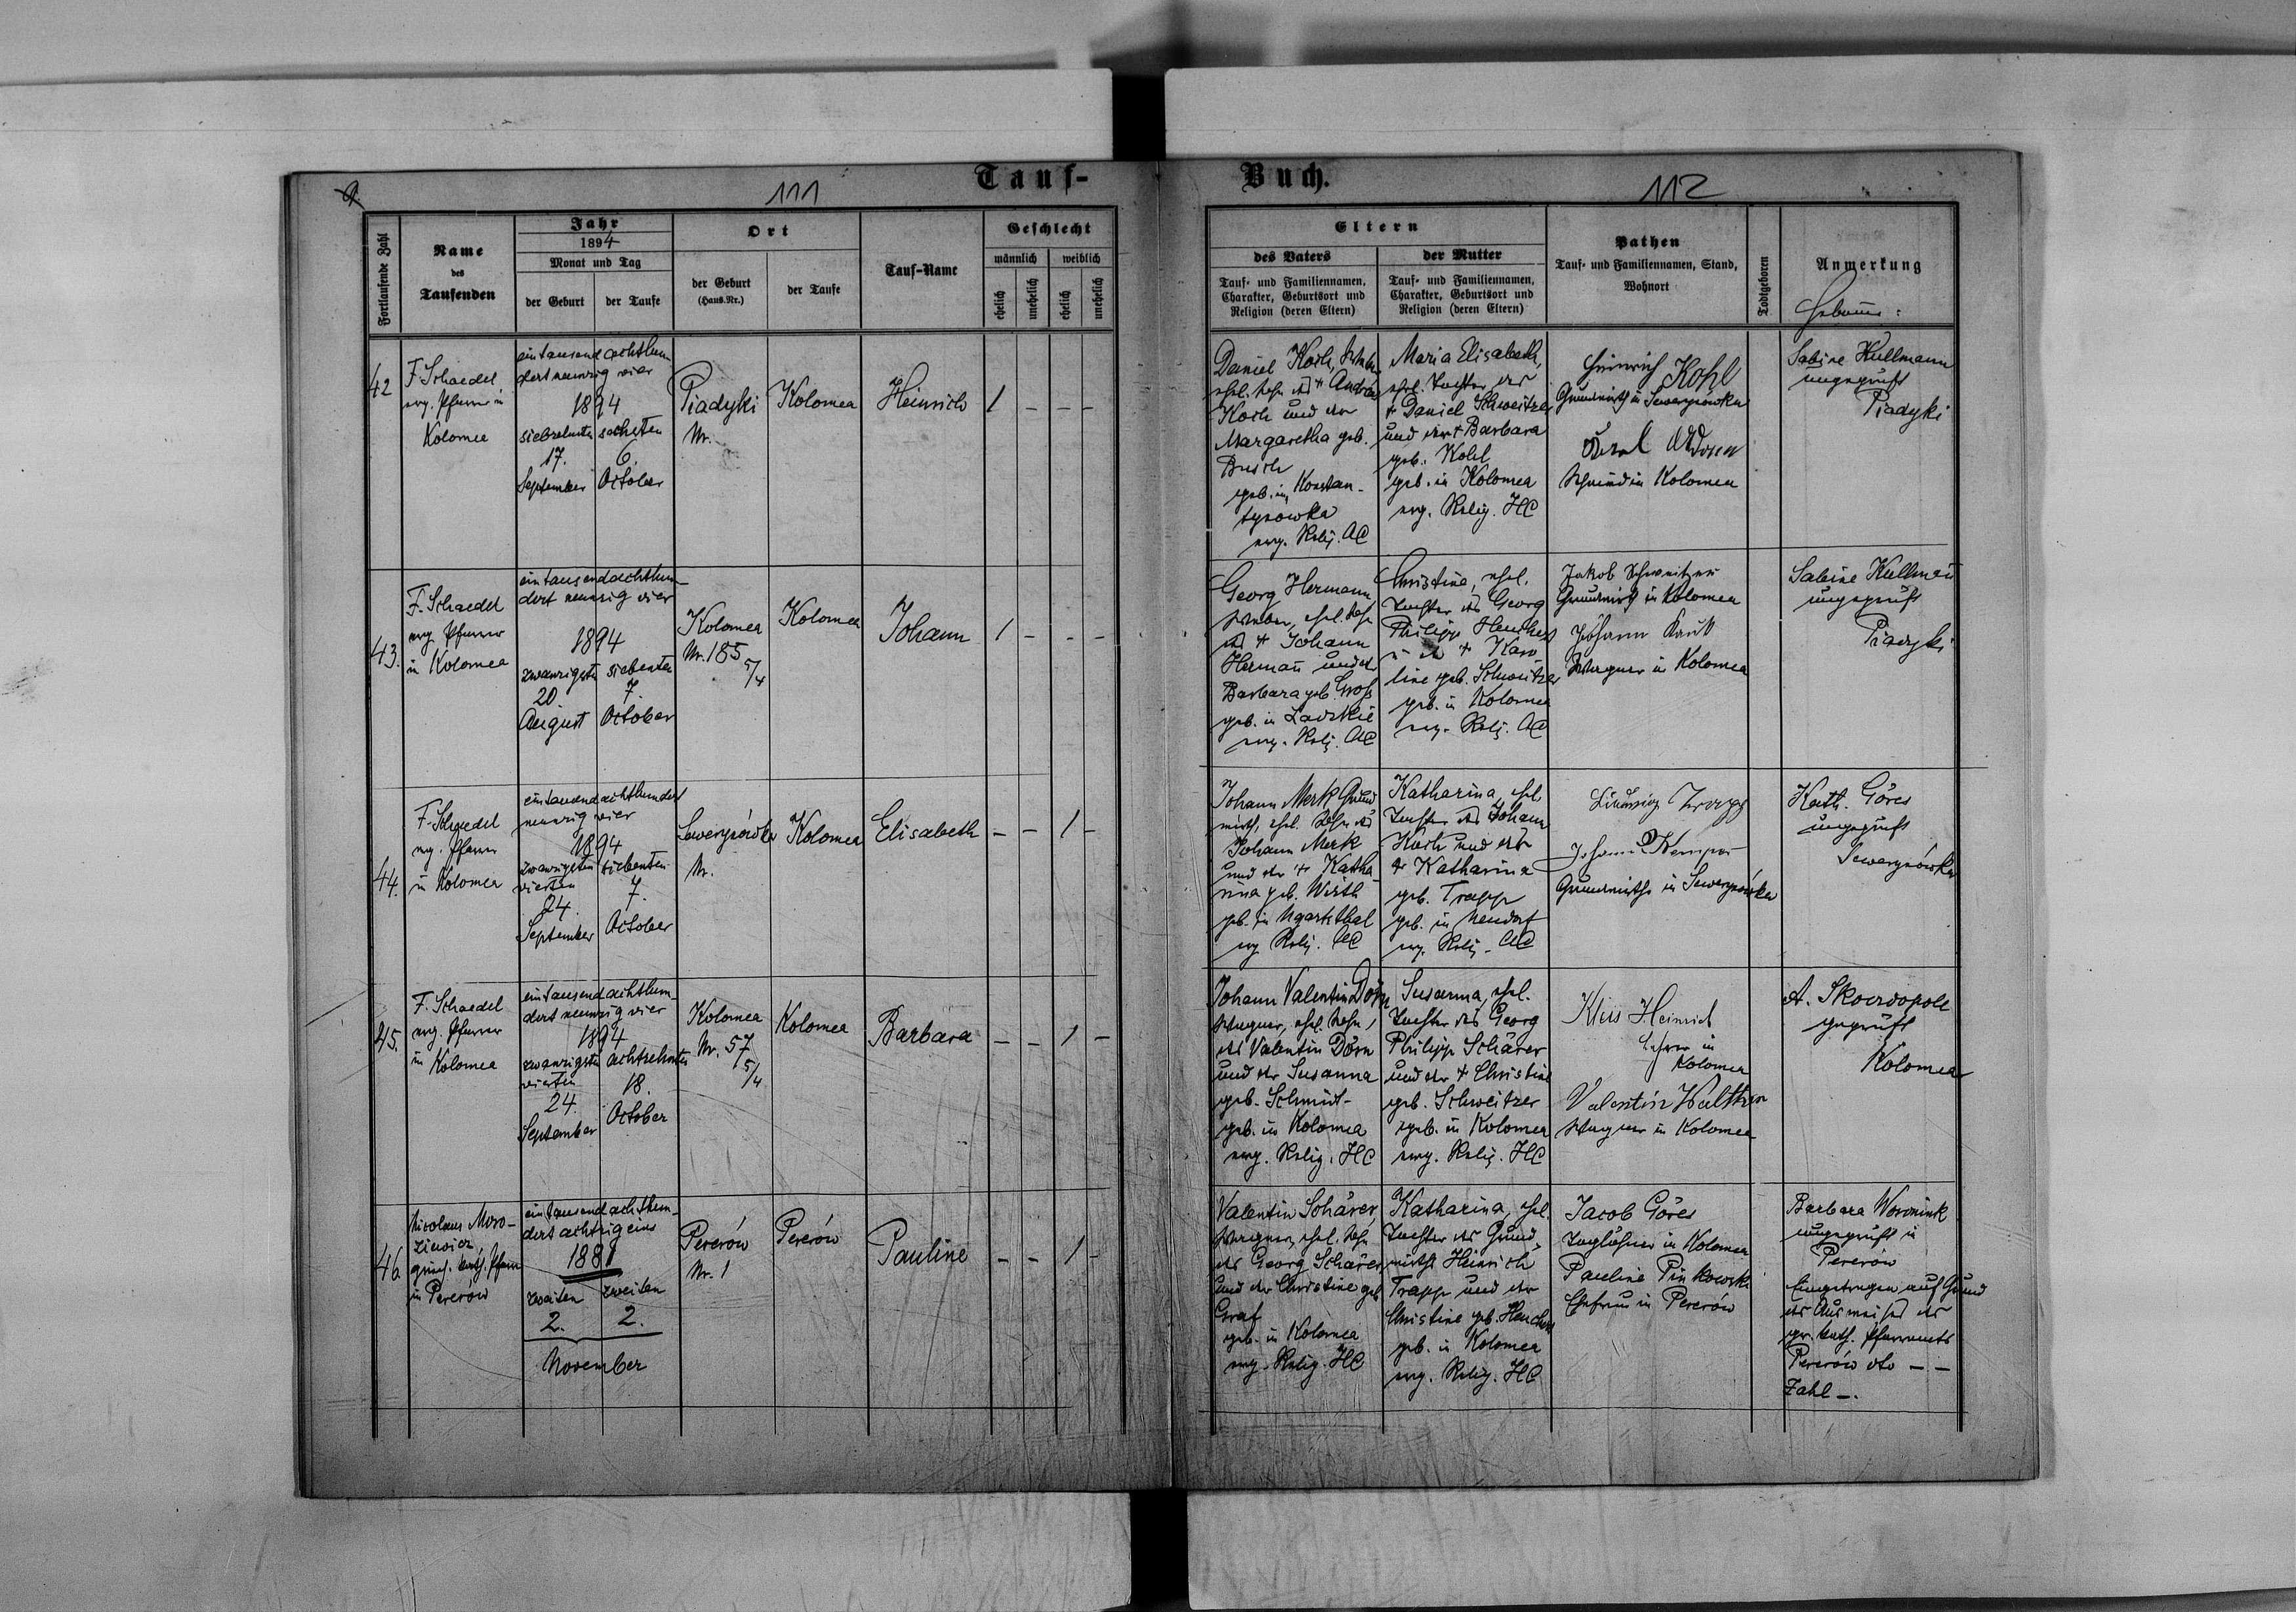 Tauf-
Buch.
111
112
Fortlaufende Zahl
Name
des
Taufenden
Jahr
1894
Monat und Tag
der Geburt
der Taufe
Ort
der Geburt
(Haus-Nr.)
der Taufe
Tauf-Name
Geschlecht
männlich
weiblich
ehelich
unehelich
ehelich
unehelich
Eltern
des Vaters
Tauf- und Familiennamen,
Charakter, Geburtsort und
Religion (deren Eltern)
der Mutter
Tauf- und Familiennamen,
Charakter, Geburtsort und
Religion (deren Eltern)
Pathen
Tauf- und Familiennamen, Stand,
Wohnort
Todtgeboren
Anmerkung
Hebamme:
42
F. Schaedel
evg. Pfarrer in
Kolomea
eintausend achthun-
dert neunzig vier
1894
siebzehnten
17.
September
sechsten
6.
October
Piadyki
Nr.
Kolomea
Heinrich
1 - - -
Daniel Koch,
ehel. Sohn des + Andreas
Koch und der
Margaretha geb.
Busch
geb. in Konstan-
tynowka
evg. Relig. AC
Maria Elisabeth,
ehel. Tochter des
+ Daniel Schweitzer
und der + Barbara
geb. Kohl
geb. in Kolomea
evg. Relig. HC
Heinrich Kohl
Grundwirth in Sewerynowka
Schmied in Kolomea
Sabine Kullmann
ungeprüft
Piadyki
43.
F. Schaedel
evg. Pfarrer
in Kolomea
eintausendachthun-
dert neunzig vier
1894
zwanzigsten
20.
August
siebenten
7.
October
Kolomea
Nr. 185
5/4
Kolomea
Johann
1 - - -
Georg Hermann
Weber, ehel. Sohn
des + Johann
Hermann und der
Barbara geb. Groß
geb. in Ladzkie
evg. Relig. AC
Christine, ehel.
Tochter des Georg
Philipp Henches
u der + Karo-
line geb. Schweitzer
geb. in Kolomea
evg. Relig. AC
Jakob Schweitzer
Grundwirth in Kolomea
Johann Kauk
Wagner in Kolomea
Sabine Kullmann
ungeprüft
Piadyki
44.
F. Schaedel
evg. Pfarrer
in Kolomea
eintausendachthundert
neunzig vier
1894
zwanzigsten
vierten
24.
September
siebenten
7.
October
Sewerynówka
Nr.
Kolomea
Elisabeth
- - 1 -
Johann Merk Grund
wirth, ehel. Sohn des
Johann Merk
und der + Katha-
rina geb. Wirth
geb. in Ugartsthal
evg Relig. AC
Katharina, ehel
Tochter des Johann
Koch und der
+ Katharina
geb. Trapp
geb. in Neudorf
evg. Relig. AC
Ludwig Trapp
Johann Kemper
Grundwirthe in Sewerynówka
Kath. Göres
ungeprüft
Sewerynówka
45.
F. Schaedel
evg. Pfarrer
in Kolomea
eintausend achthun-
dert neunzig vier
1894
zwanzigsten
vierten
24.
September
achtzehnten
18.
October
Kolomea
Nr. 57
5/4
Kolomea
Barbara
- - 1 -
Johann Valentin Dörn
Wagner, ehel. Sohn,
des Valentin Dörn
und der Susanna
geb. Schmidt-
geb. in Kolomea
evg. Relig. HC
Susanna, ehel.
Tochter des Georg
Philipp Schärer
und der + Christine
geb. Schweitzer
geb. in Kolomea
evg. Relig. HC
Kleis Heinrich
Lehrer in
Kolomea
Valentin Walther
Wagner in Kolomea
A. Skowropole
geprüft
Kolomea
46.
Nicolaus Moro-
ziewicz
griech. kath. Pfarrer
in Pererow
eintausendachthun-
dert achtzig eins
1881
zweiten
2.
zweiten
2.
November
Pererów
Nr. 1
Pererów
Pauline
- - 1 -
Valentin Schärer,
Wagner, ehel. Sohn
des Georg Schärer
und der Christine geb
Graf
geb. in Kolomea
evg. Relig. HC
Katharina, ehel.
Tochter des Grund-
wirth Heinrich
Trapp und der
Christine geb. Henches
geb. in Kolomea
evg. Relig. HC
Jacob Göres
Taglöhner in Kolomea
Pauline Pinkowski
Ehefrau in Pererów
Barbara Woronink
ungeprüft in
Pererów
Eingetragen auf Grund
des Ausweises des
gr. kath. Pfarramts
Pererów dto — —
Zahl —.